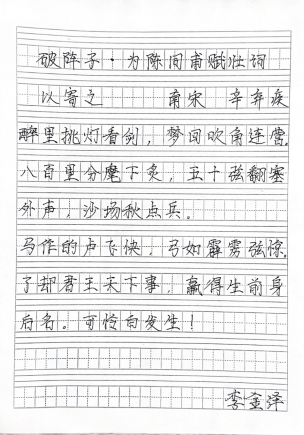 破阵子·为陈同甫赋壮词
以寄之 南宋 辛弃疾
醉里挑灯看剑，梦回吹角连营。
八百里分麾下炙，五十弦翻塞
外声，沙场秋点兵。
马作的卢飞快，弓如霹雳弦惊。
了却君王天下事，赢得生前身
后名。可怜白发生！
李金泽